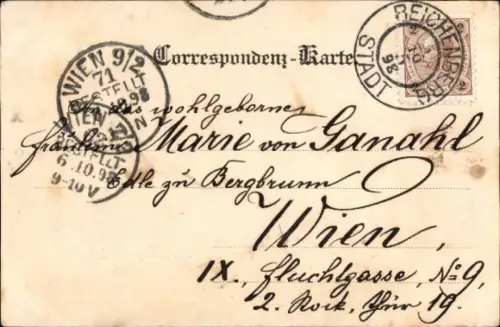 Correspondenz-Karte
REICHENBERG STADT
98
WIEN 9/2
71
BESTELLT
98
WIEN
BESTELLT
6.10.98
9-10V
das wohlgeborne
fräulein Marie von Ganahl
Edle zu Bergbrunn
Wien,
IX., Fluchtgasse, No 9,
2. Stock, Thür 19.